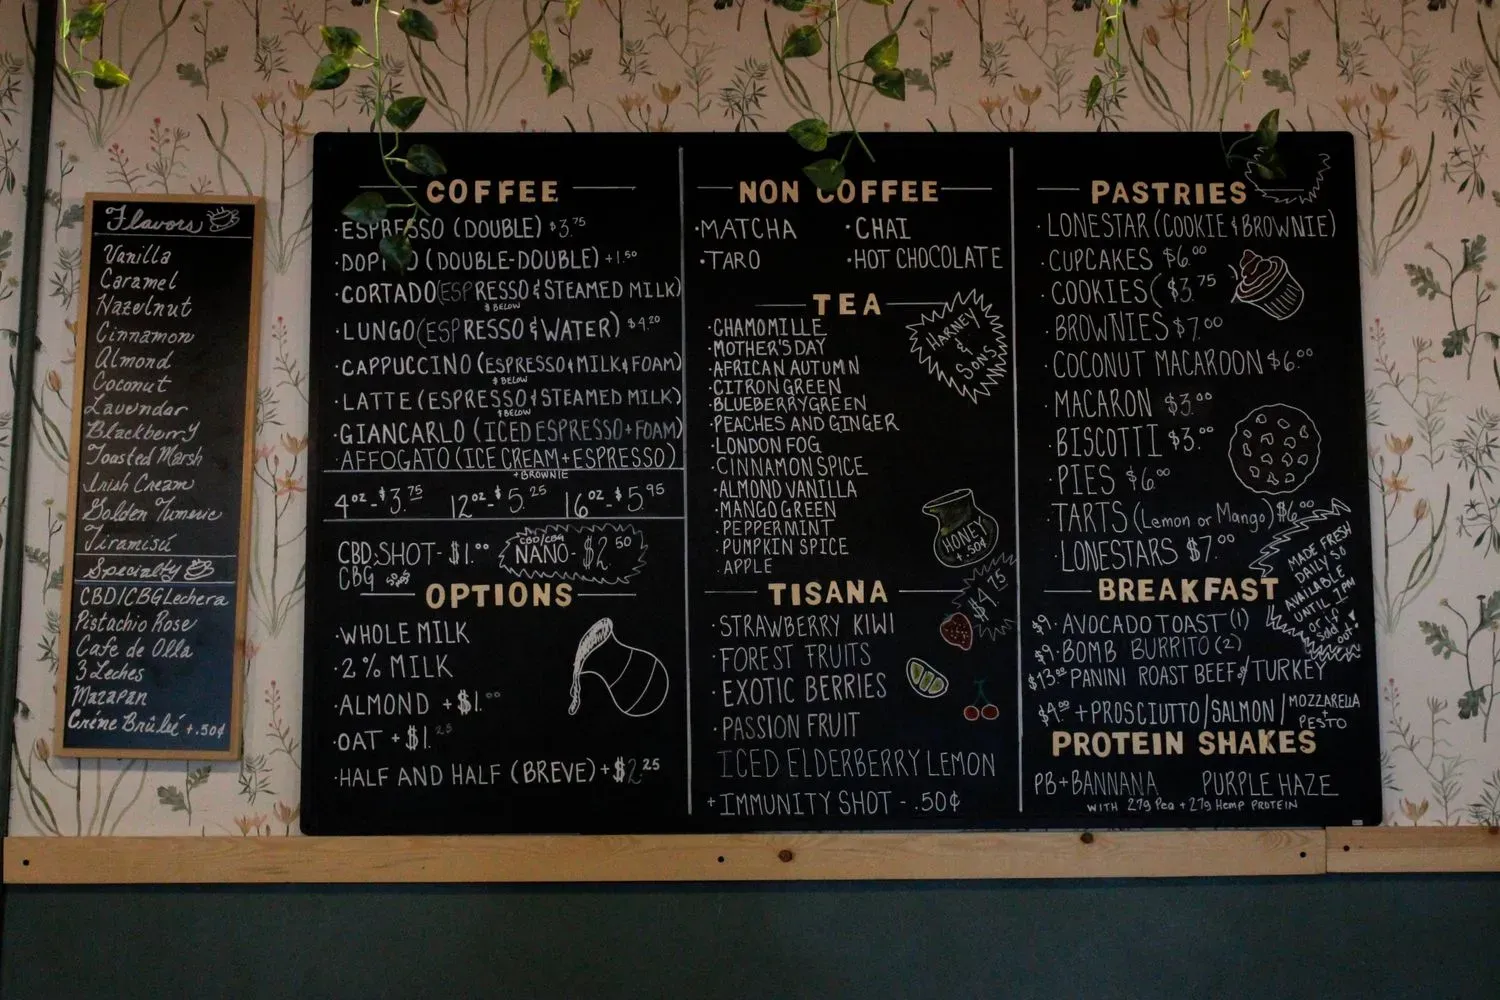 Flavors
Vanilla
Caramel
Hazelnut
Cinnamon
Almond
Coconut
Lavendar
Blackberry
Toasted Marsh
Irish Cream
Golden Tumeric
Tiramisú
Specialty
CBD/CBG Lechera
Pistachio Rose
Cafe de Olla
3 Leches
Mazapan
Créme Brûleé +.50¢
COFFEE
·ESPRESSO (DOUBLE) $3.75
·DOPIO (DOUBLE-DOUBLE) +1.50
·CORTADO (ESPRESSO & STEAMED MILK)
$ BELOW
·LUNGO (ESPRESSO & WATER) $4.20
·CAPPUCCINO (ESPRESSO+MILK+FOAM)
$ BELOW
·LATTE (ESPRESSO & STEAMED MILK)
$ BELOW
·GIANCARLO (ICED ESPRESSO+FOAM)
·AFFOGATO (ICE CREAM+ESPRESSO)
+BROWNIE
4oz-$3.75 12oz-$5.25 16oz-$5.95
CBD:SHOT-$1.00
CBG
CBD/CBG
NANO-$2.50
OPTIONS
·WHOLE MILK
·2% MILK
·ALMOND +$1.00
·OAT +$1.25
·HALF AND HALF (BREVE)+$2.25
NON COFFEE
·MATCHA ·CHAI
·TARO ·HOT CHOCOLATE
TEA
HARNEY
&
SONS
·CHAMOMILLE
·MOTHER'S DAY
·AFRICAN AUTUMN
·CITRON GREEN
·BLUEBERRY GREEN
·PEACHES AND GINGER
·LONDON FOG
·CINNAMON SPICE
·ALMOND VANILLA
·MANGO GREEN
·PEPPERMINT
·PUMPKIN SPICE
·APPLE
HONEY
+.50¢
TISANA
$4.75
·STRAWBERRY KIWI
·FOREST FRUITS
·EXOTIC BERRIES
·PASSION FRUIT
ICED ELDERBERRY LEMON
+IMMUNITY SHOT - .50¢
PASTRIES
·LONESTAR (COOKIE & BROWNIE)
·CUPCAKES $6.00
·COOKIES ($3.75
·BROWNIES $7.00
·COCONUT MACAROON $6.00
·MACARON $3.00
·BISCOTTI $3.00
·PIES $6.00
·TARTS (Lemon or Mango) $6.00
·LONESTARS $7.00
MADE FRESH
DAILY SO
AVAILABLE
UNTIL 7PM
or if
sold
out!
BREAKFAST
$9 ·AVOCADO TOAST (1)
$9 ·BOMB BURRITO (2)
$13.00 ·PANINI ROAST BEEF/TURKEY
$4.00 +PROSCIUTTO/SALMON/MOZZARELLA
+
PESTO
PROTEIN SHAKES
PB+BANNANA PURPLE HAZE
WITH 27g Pea + 27g Hemp PROTEIN